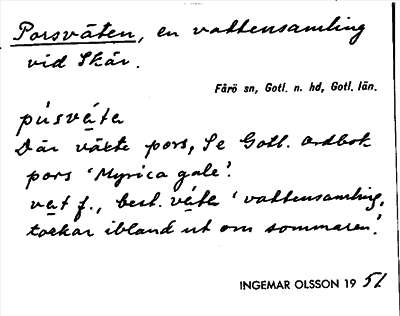 Porsväten, en vattensamling
vid Skär.
Fårö sn, Gotl. n. hd, Gotl. län.
pusväta
Där växte pors, Se Gotl. ordbok
pors 'Myrica gale'.
vat f., best. väta 'vattensamling,
torkar ibland ut om sommaren'.
INGEMAR OLSSON 1951